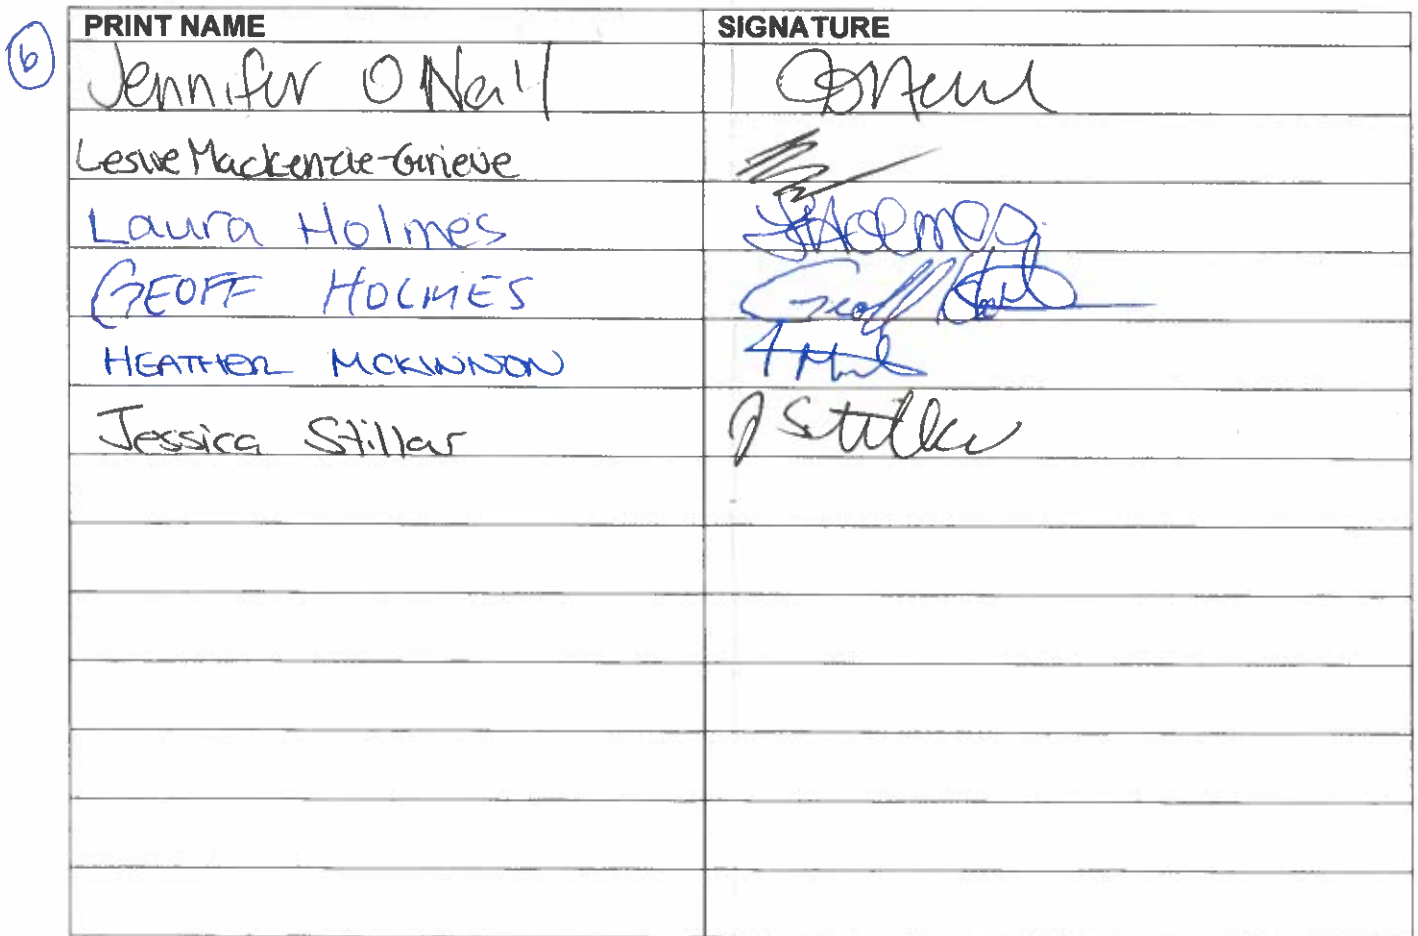 PRINT NAME SIGNATURE
6
Jennifer O Neill
Leslie Mackenzie-Grieve
Laura Holmes LHolmes
GEOFF HOLMES Geoff
HEATHER MCKINNON
Jessica Stillar J Stillar